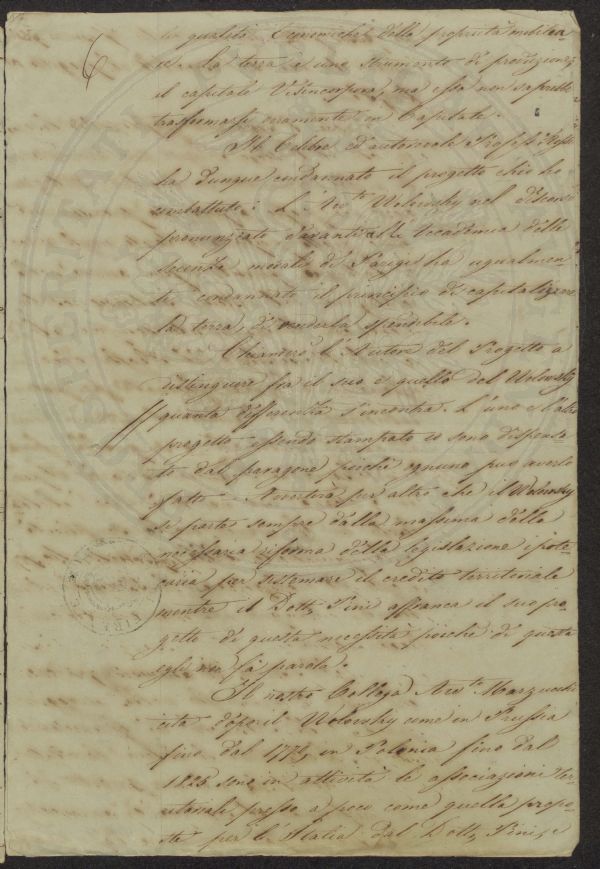 6
le qualità economiche della proprietà mobilia-
re. La terra è uno strumento di produzione
il capitale vi s'incorpora, ma essa non saprebbe
trasformarsi veramente in Capitale.
Il Celebre ed autorevole Profess.
ha dunque condannato il progetto ch'io ho
combattuto. L'Avv.to Wolowsky nel discorso
pronunziato davanti all'Accademia delle
scienze morali di Parigi ha ugualmen
te condannato il principio di capitalizzare
la terra, di renderla spendibile.
Chiamerò l'Autore del Progetto a
distinguere fra il suo e quello del Wolowsky
quanta differenza s'incontra. L'uno e l'altro
progetto essendo stampato io sono dispensa
to dal paragone poiché ognuno può averlo
fatto. Avvertirò per altro che il Wolowsky
si parte sempre dalla massima della
necessaria riforma della legislazione ipote
caria per sistemare il credito territoriale
mentre il Dott. Pini affranca il suo pro
getto di questa necessità poiché di questa
egli non fà parola.
Il nostro Collega Avv.to Marzucchi
cita dopo il Wolowsky come in Prussia
fino dal 1770, in Polonia fino dal
1825 sono in attività le associazioni ter
ritoriali presso a poco come quella propo
sta per l'Italia dal Dott. Pini, e